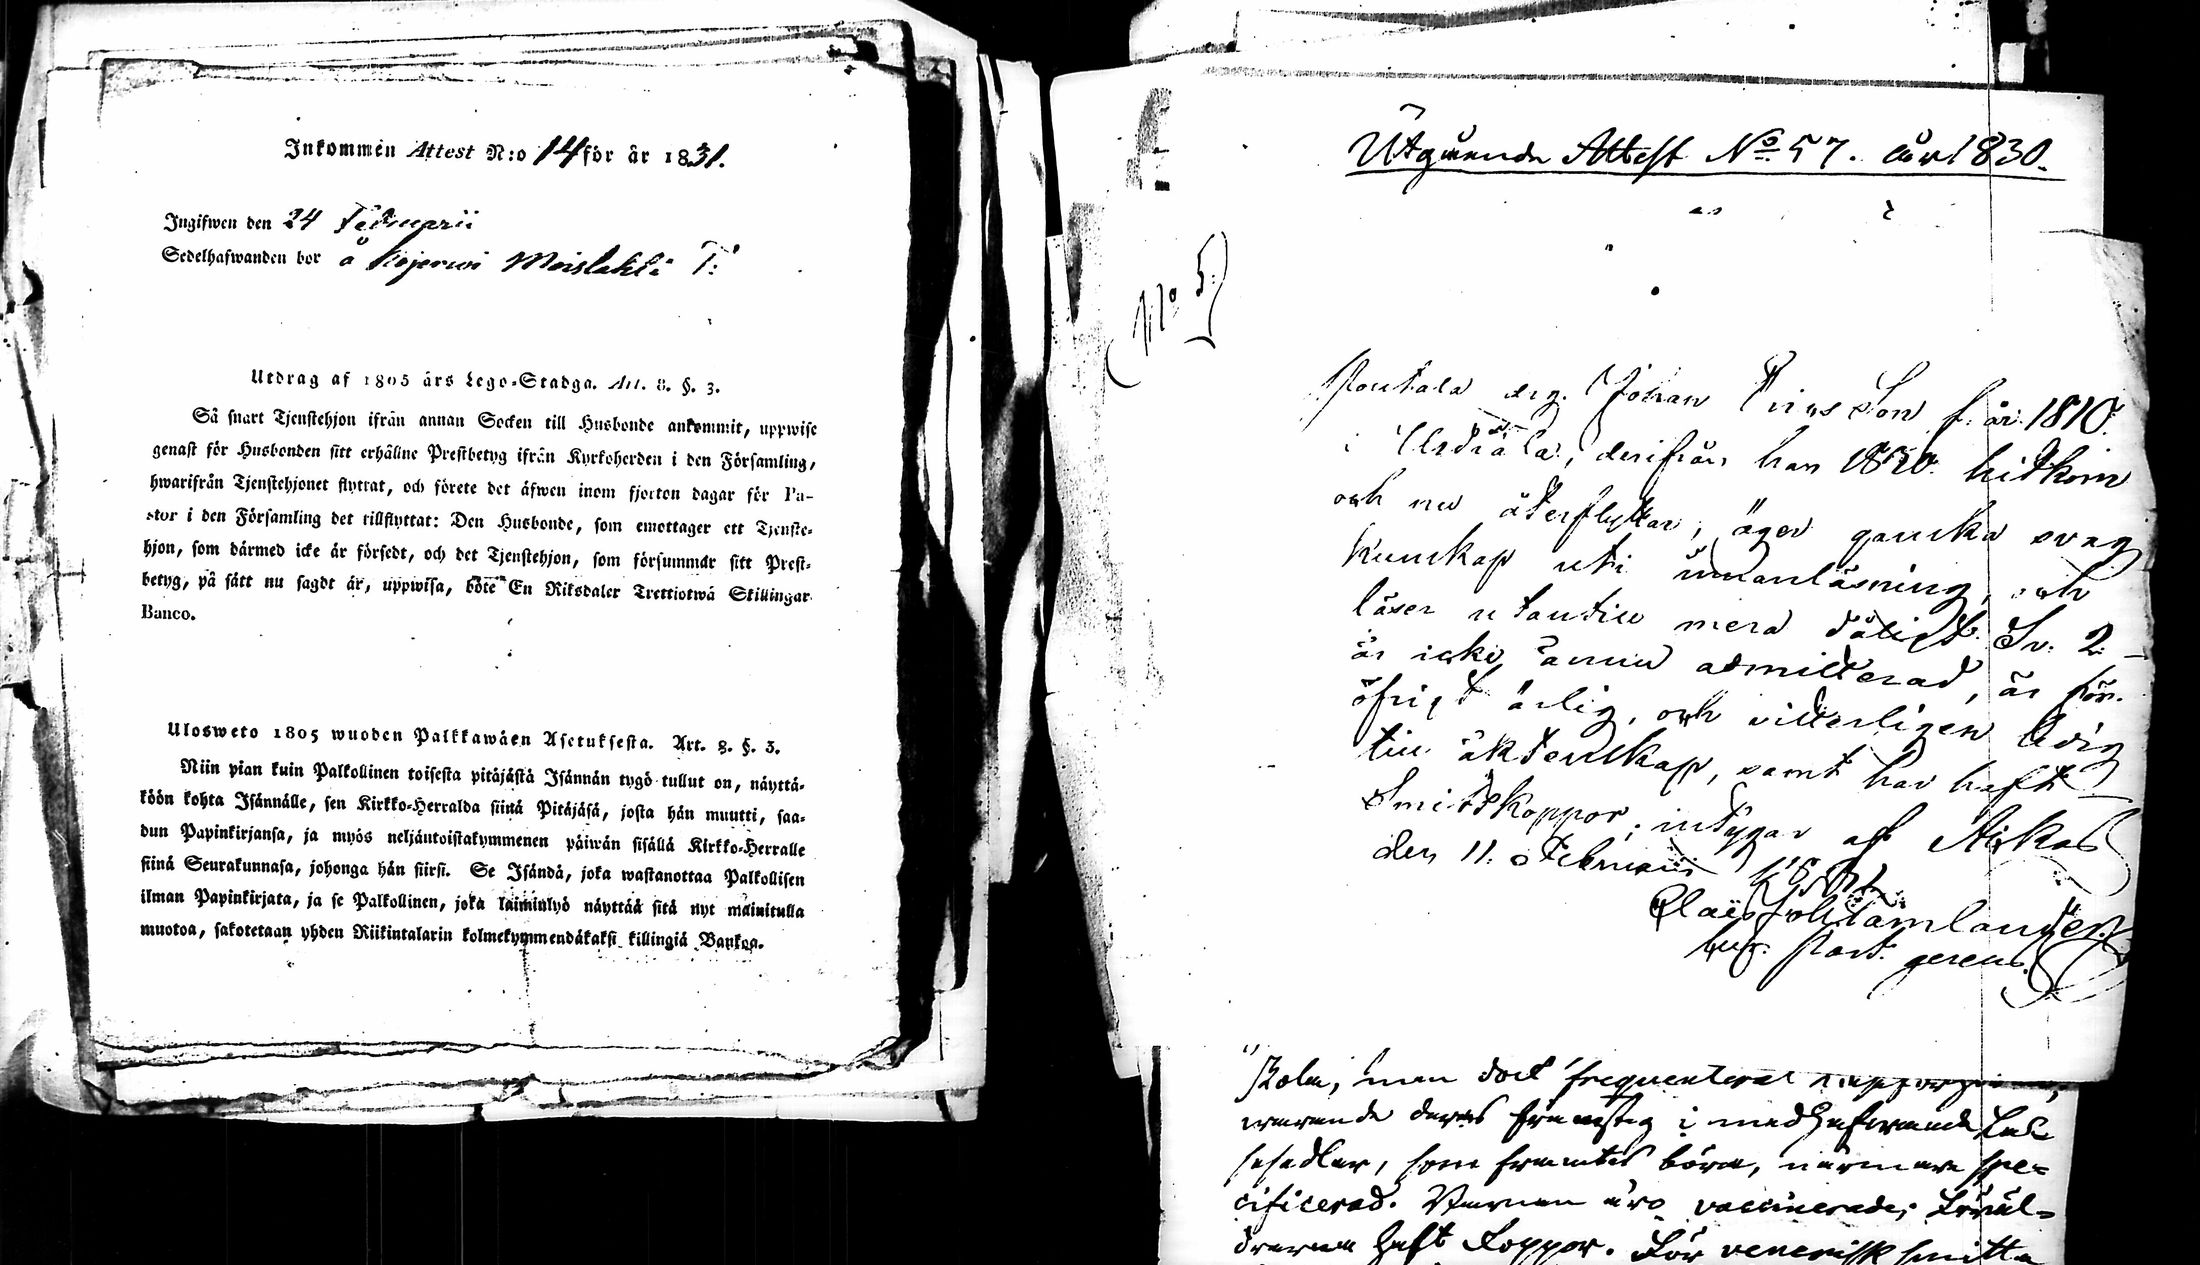 Inkommen Attest N:o 14 för år 1831.
Ingifwen den 24 Februarii
Sedelhafwanden bor å Kojerwi Moislahti T:
Utdrag af 1805 års Lego-Stadga. Art. 8. §. 3.
Så snart Tjenstehjon ifrån annan Socken till Husbonde ankommit, uppwise
genast för Husbonden sitt erhållne Prestbetyg ifrån Kyrkoherden i den Församling,
hwarifrån Tjenstehjonet flyttat, och förete det äfwen inom fjorton dagar för Pa-
stor i den Församling det tillflyttat: Den Husbonde, som emottager ett Tjenste-
hjon, som därmed icke är försedt, och det Tjenstehjon, som försummar sitt Prest-
betyg, på sätt nu sagdt är, uppwisa, böte En Riksdaler Trettiotwå Skillingar
Banco.
Ulosweto 1805 wuoden Palkkawäen Asetuksesta. Art. 8. §. 3.
Niin pian kuin Palkollinen toisesta pitäjästä Isännän tygö tullut on, näyttä-
köön kohta Isännälle, sen Kirkko-Herralda siinä Pitäjäsä, josta hän muutti, saa-
dun Papinkirjansa, ja myös neljäntoistakymmenen päiwän sisällä Kirkko-Herralle
siinä Seurakunnasa, johonga hän siirsi. Se Isändä, joka wastanottaa Palkollisen
ilman Papinkirjata, ja se Palkollinen, joka laiminlyö näyttää sitä nyt mainitulla
muotoa, sakotetaan yhden Riikintalarin kolmekymmendäkaksi killingiä Bankoa.
Utgående Attest No 57. år 1830.
(No 5)
drg. Johan son f. år 1810.
i Urdiala, derifrån han 1830 hitkom
och nu återflyttar, äger ganska svag
kunskap uti innanläsning, och
läser utantill mera dåligt. Sv. 2.
är icke ännu admitterad, är för
öfrigt ärlig, och vitterligen ledig
till äktenskap, samt har haft
Smittkoppor; intygar af Akkas
den 11. Februarii
Past. gerens.
men dock frequenterat
warande deras framsteg i medhafwande Lä-
sesedlar, som framtes böra, närmare spe-
cificerad. Barnen äro vaccinerade; Föräl-
drarne haft Koppor. För venerisk smitta